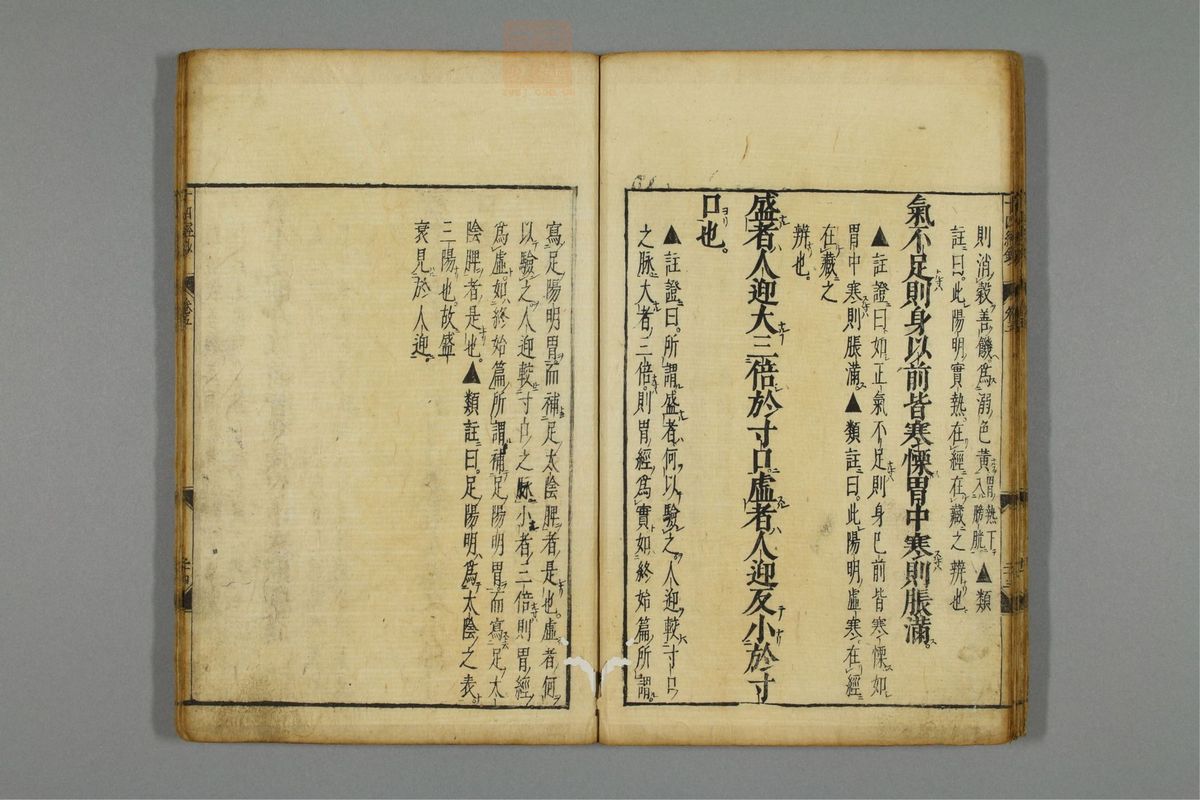 則消穀善饑。爲溺色黄入膀胱胃熱下▲類
註曰。此陽明實熱在經在藏之辨也
氣不足則身以前皆寒慄胃中寒則脹滿。
▲註證曰如正氣不足則身已前皆寒慄如
胃中寒則脹滿。▲類註曰。此陽明虛寒在經
在藏之
辨也。
盛者人迎大三倍於寸口虛者人迎反小於寸
口也。
▲註證曰。所謂盛者何以驗之。人迎較寸口
之脉大者三倍。則胃經爲實如終始篇所謂。
寫足陽明胃而補足太陰脾者是也。虛者何
以驗之。人迎較寸口之脉小者三倍則胃經
爲虛。如終始篇所謂補足陽明胃而寫足太
陰脾者是也。▲類註曰。足陽明爲太陰之表
三陽也。故盛
衰見於人迎。